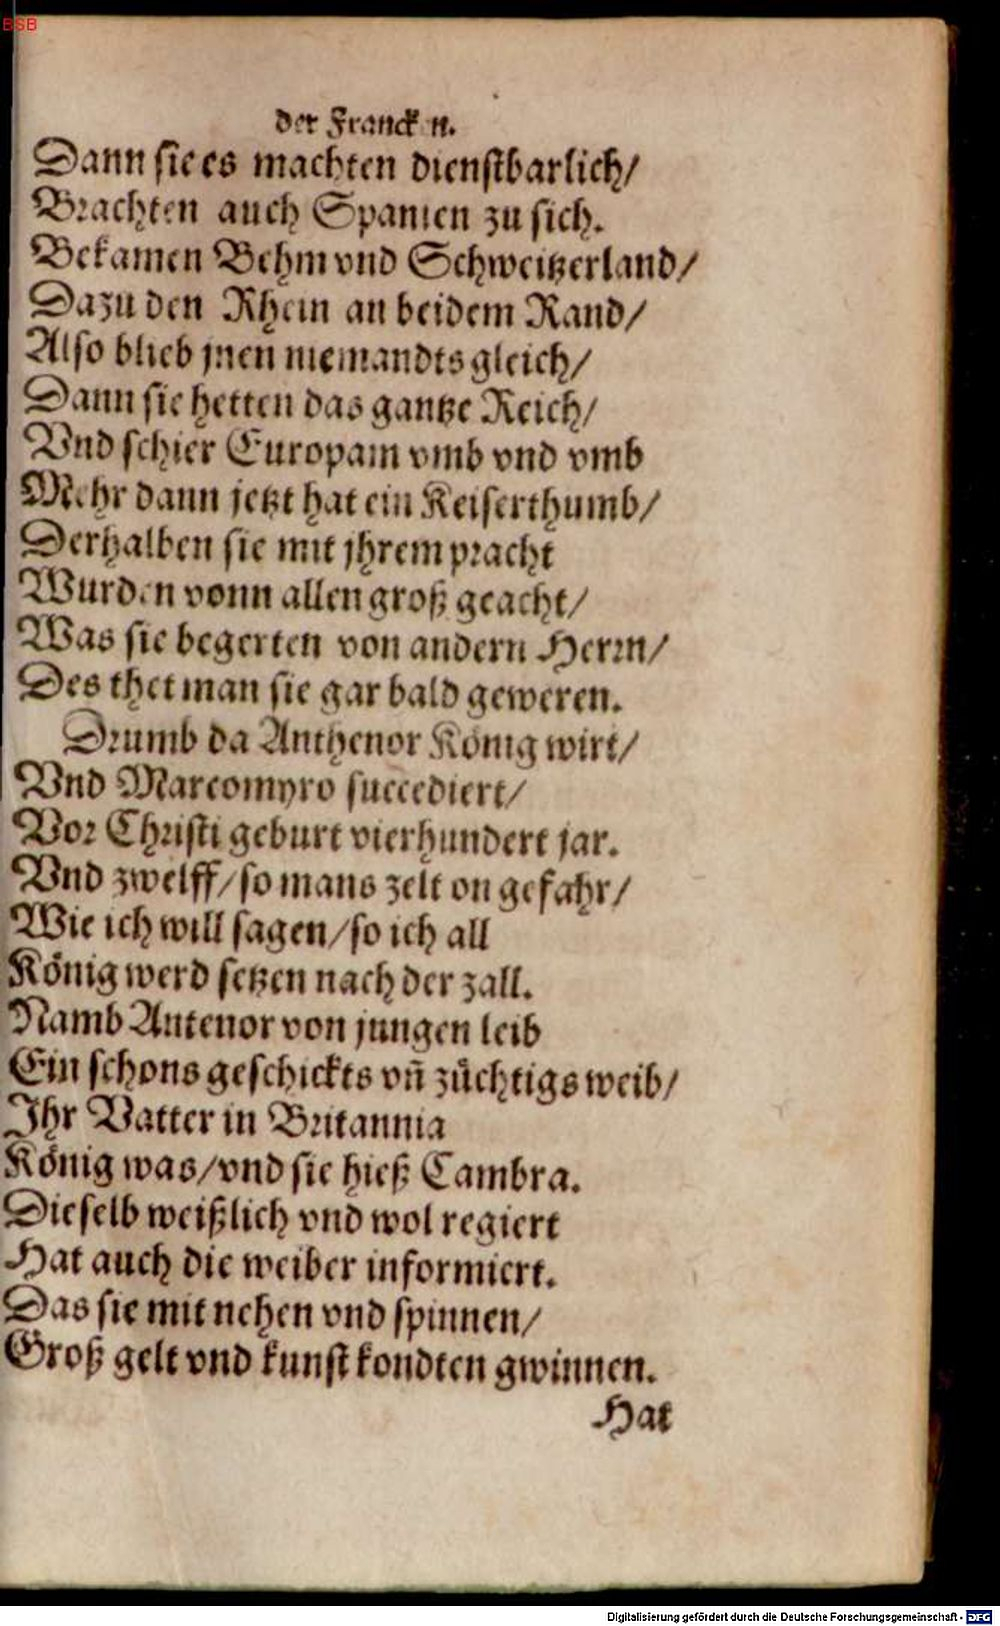 BSB
der Francken.
Dann sie es machten dienstbarlich/
Brachten auch Spanien zu sich.
Bekamen Behm vnd Schweitzerland/
Dazu den Rhein an beidem Rand/
Also blieb jnen niemandts gleich/
Dann sie hetten das gantze Reich/
Vnd schier Europam vmb vnd vmb
Mehr dann jetzt hat ein Keiserthumb/
Derhalben sie mit jhrem pracht
Wurden vonn allen groß geacht/
Was sie begerten von andern Herrn/
Des thet man sie gar bald geweren.
Drumb da Anthenor König wirt/
Vnd Marcomyro succediert/
Vor Christi geburt vierhundert jar.
Vnd zwelff/so mans zelt on gefahr/
Wie ich will sagen/so ich all
König werd setzen nach der zall.
Namb Antenor von jungen leib
Ein schons geschickts vñ zůchtigs weib/
Ihr Vatter in Britannia
König was/vnd sie hieß Cambra.
Dieselb weißlich vnd wol regiert
Hat auch die weiber informiert.
Das sie mit nehen vnd spinnen/
Groß gelt vnd kunst kondten gwinnen.
Hat
Digitalisierung gefördert durch die Deutsche Forschungsgemeinschaft - DFG